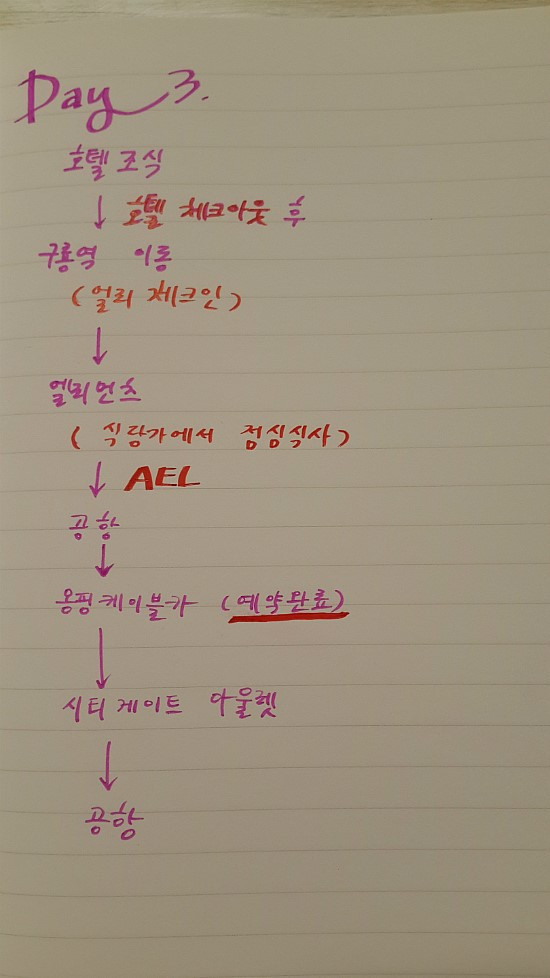 Day 3.
호텔 조식
↓ 호텔 체크아웃 후
구룡역 이동
(얼리 체크인)
↓
엘리먼츠
(식당가에서 점심식사)
↓ AEL
공항
↓
옹핑케이블카 (예약완료)
↓
시티게이트 아울렛
↓
공항